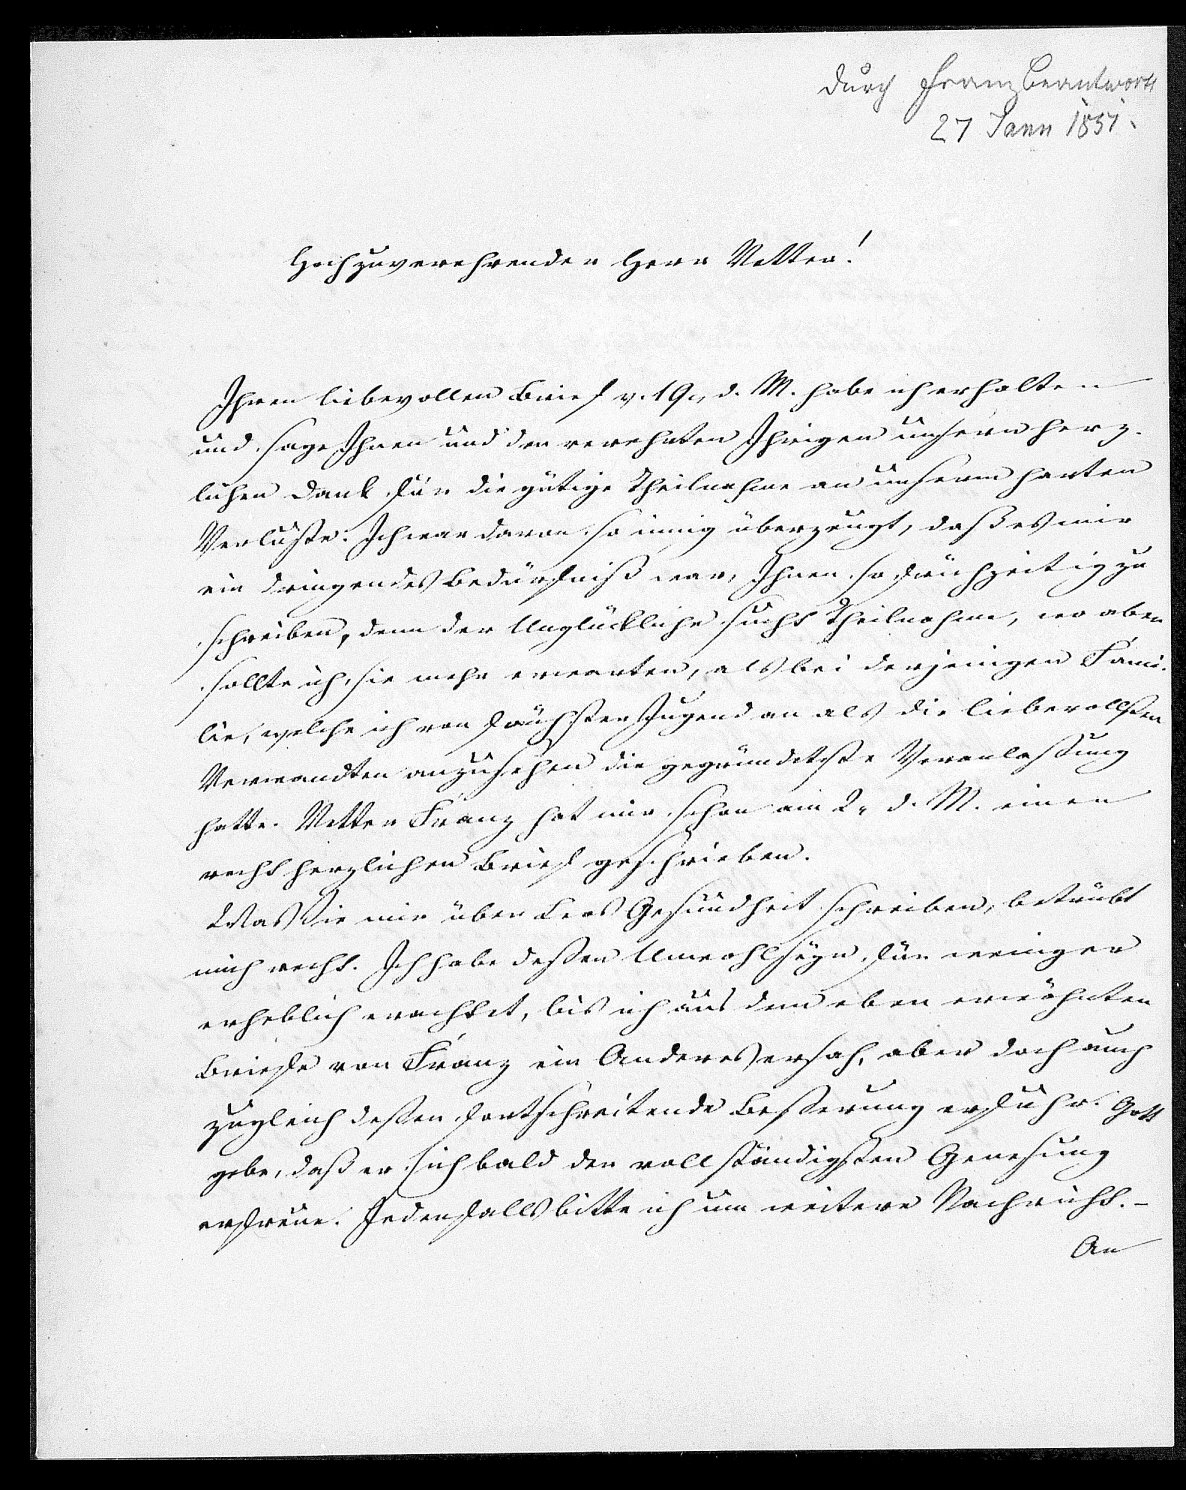 durch Franz beantwort
27 Jann 1851.
Hochzuverehrender Herr Vetter!
Ihren liebevollen Brief v. 19., d. M. habe ich erhalten
und sage Ihnen und den verehrten Ihrigen unsern herz-
lichen Dank für die gütige Theilnahme an unserem harten
Verluste. Ich war davon so innig überzeugt, daß es mir
ein dringendes Bedürfniß war, Ihnen so frühzeitig zu
schreiben, denn der Unglückliche sucht Theilnahme, wo aber
sollte ich sie mehr erwarten, als bei derjenigen Fami-
lie, welche ich von frühster Jugend an als die liebevollsten
Verwandten anzusehen die gegründetste Veranlaßung
hatte. Vetter Franz hat mir schon am 2. d. M. einen
recht herzlichen Brief geschrieben.
Was Sie mir über Leos Gesundheit schreiben, betrübt
mich recht. Ich habe deßen Unwohlseyn für weniger
erheblich erachtet, bis ich aus dem eben erwähnten
Briefe von Franz ein Anderes ersah, aber doch auch
zugleich deßen fortschreitende Beßerung erfuhr. Gott
gebe, daß er sich bald der vollständigsten Genesung
erfreue. Jedenfalls bitte ich um weitere Nachricht. –
An